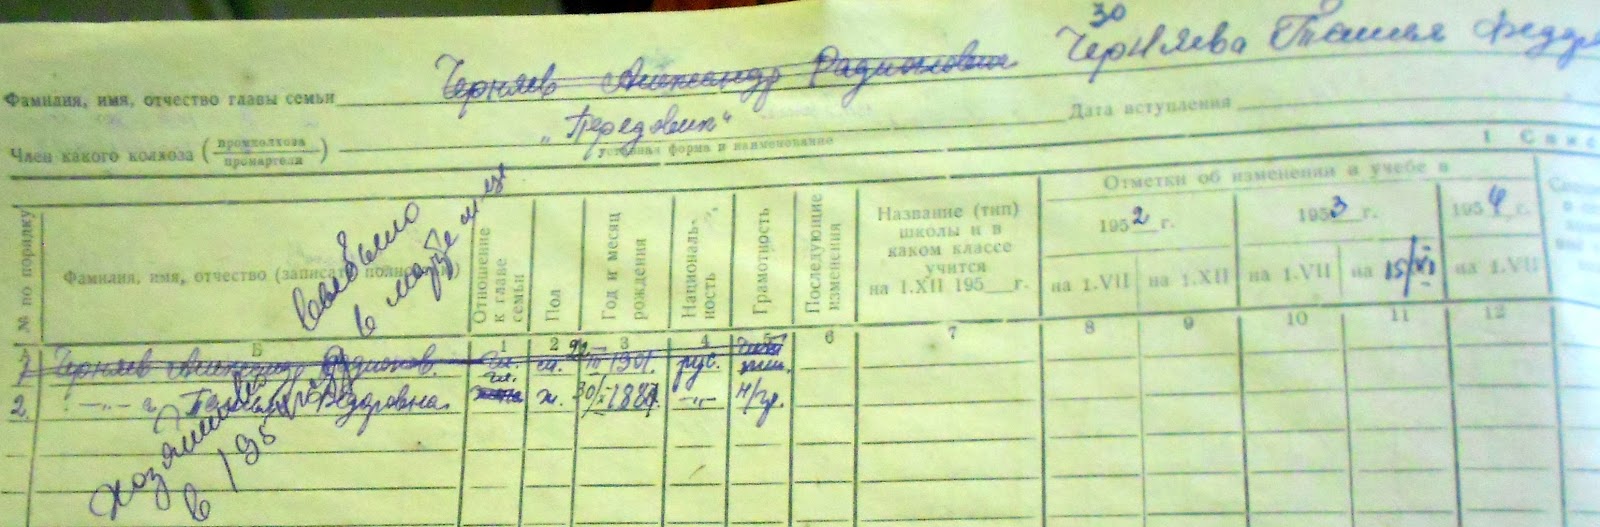 30
Фамилия, имя, отчество главы семьи Черняев Александр Радионович Черняева Федор
Член какого колхоза (промколхоза промартели) „Передовик" Дата вступления
уставная форма и наименование
1 Спис
№ по порядку
Фамилия, имя, отчество (записать полностью)
Отношение к главе семьи
Пол
Год и месяц рождения
Националь-ность
Грамотность
Последующие изменения
Название (тип) школы и в каком классе учится на 1.XII 195__г.
Отметки об изменении в учебе в
1952 г.
1953 г.
1954 г.
на 1.VII
на 1.XII
на 1.VII
на 15/XI
на 1.VII
Б 1 2 3 4 5 6 7 8 9 10 11 12
1 Черняев Александр Радионов. гл. м. 22 III 1901 рус.
2. —„— Федоровна гл. ж. 30/X 188 —„— н/гр.
выбыло
в марте м-це
хозяйство
в 195